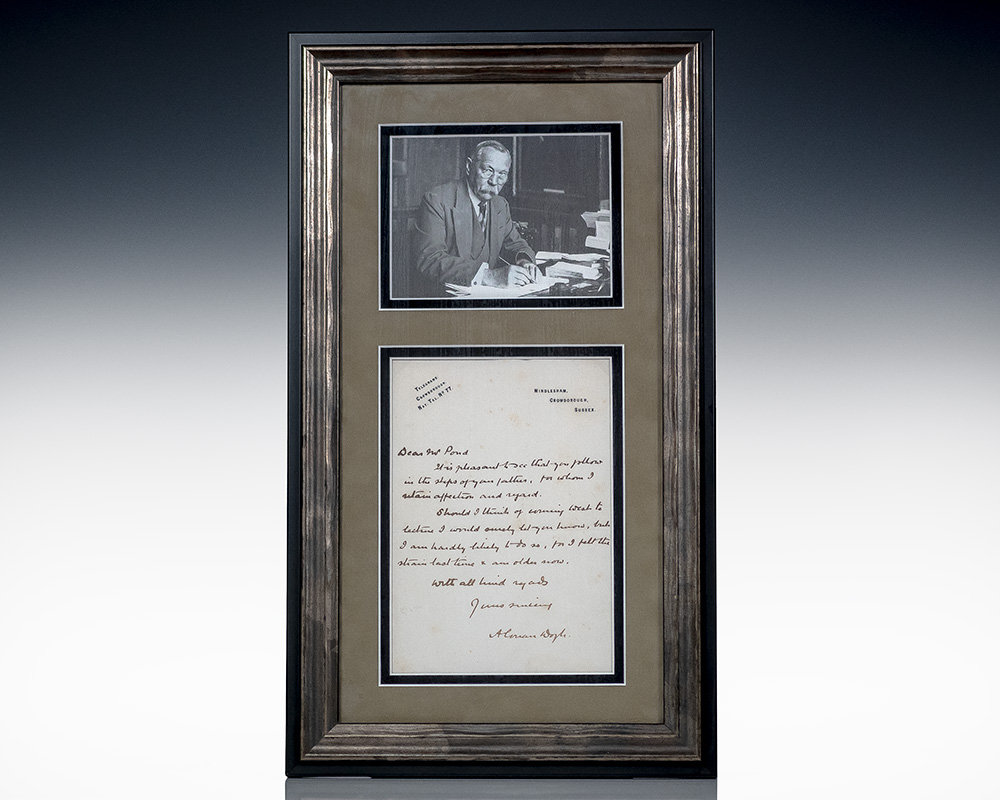 TELEGRAMS
CROWBOROUGH.
NAT. TEL. Nº 77.
WINDLESHAM,
CROWBOROUGH,
SUSSEX.
Dear Mr Pond
It is pleasant to see that you follow
in the steps of your father, for whom I
retain affection and regard.
Should I think of coming West to
lecture I would surely let you know, but
I am hardly likely to do so, for I felt the
strain last time & am older now.
With all kind regards
Yours sincerely
A Conan Doyle.